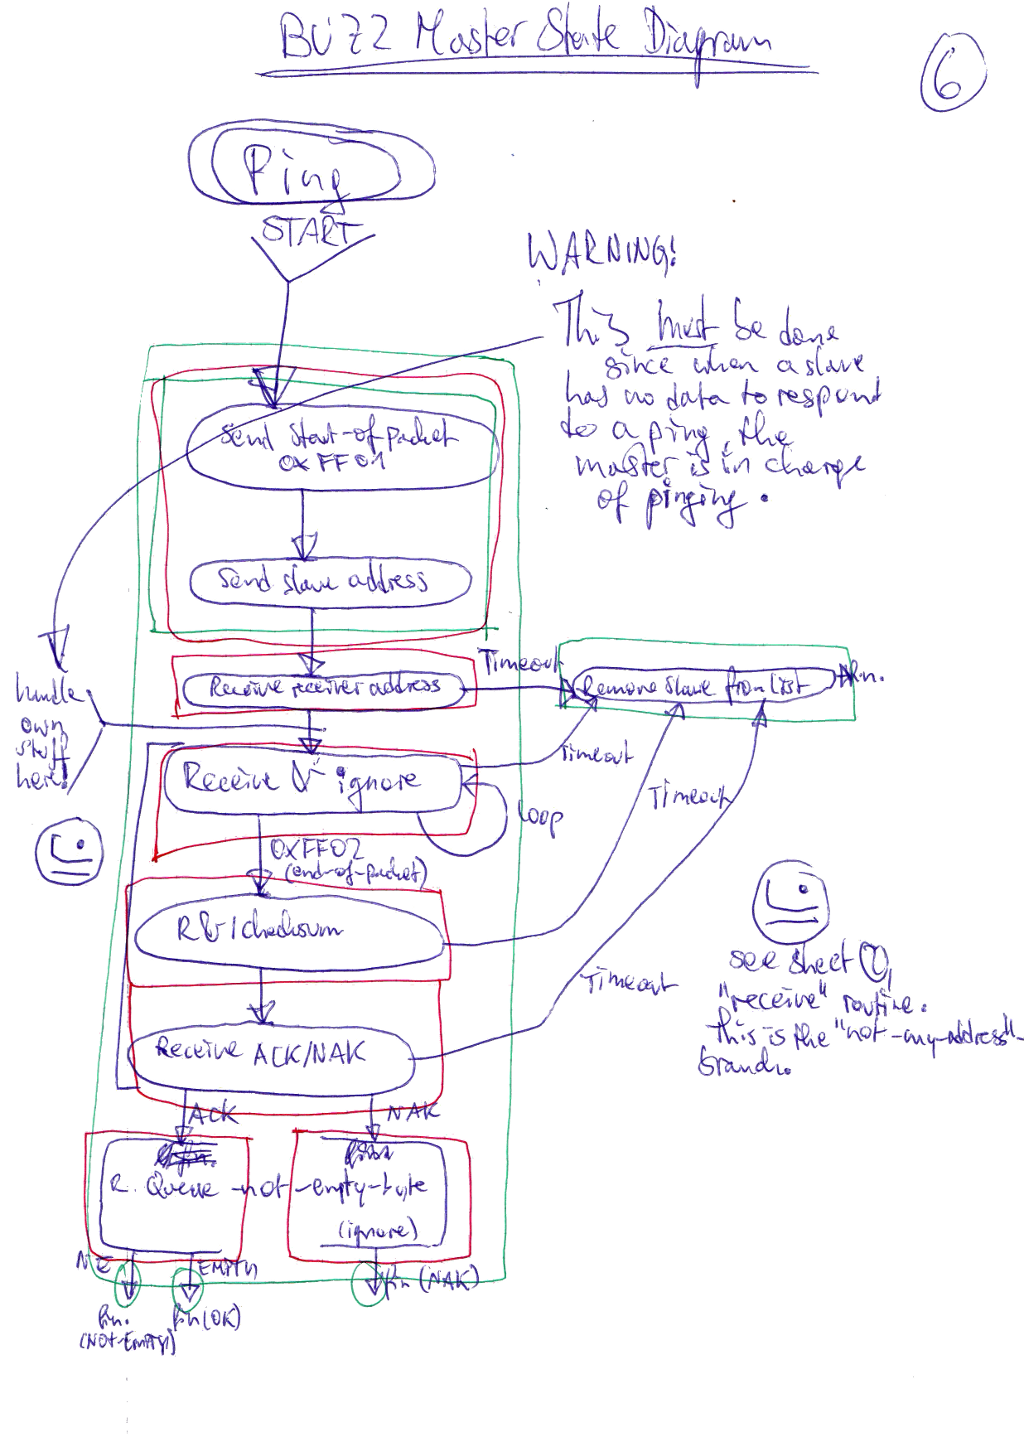 BUZZ Master State Diagram
6
Ping
START
WARNING!
This must be done
since when a slave
has no data to respond
to a ping, the
master is in charge
of pinging.
Send start-of-packet
0xFF01
Send slave address
Timeout
Receive receiver address
Remove slave from list
fin.
handle
own
stuff
here!
Receive & ignore
Timeout
loop
Timeout
0xFF02
(end-of-packet)
R &/ checksum
see sheet
"receive" routine.
This is the "not-my-address"-
branch.
Timeout
Receive ACK/NAK
ACK
NAK
R. Queue-not-empty-byte
(ignore)
NE
EMPTY
fin (NAK)
fin.
(NOT-EMPTY)
fin (OK)